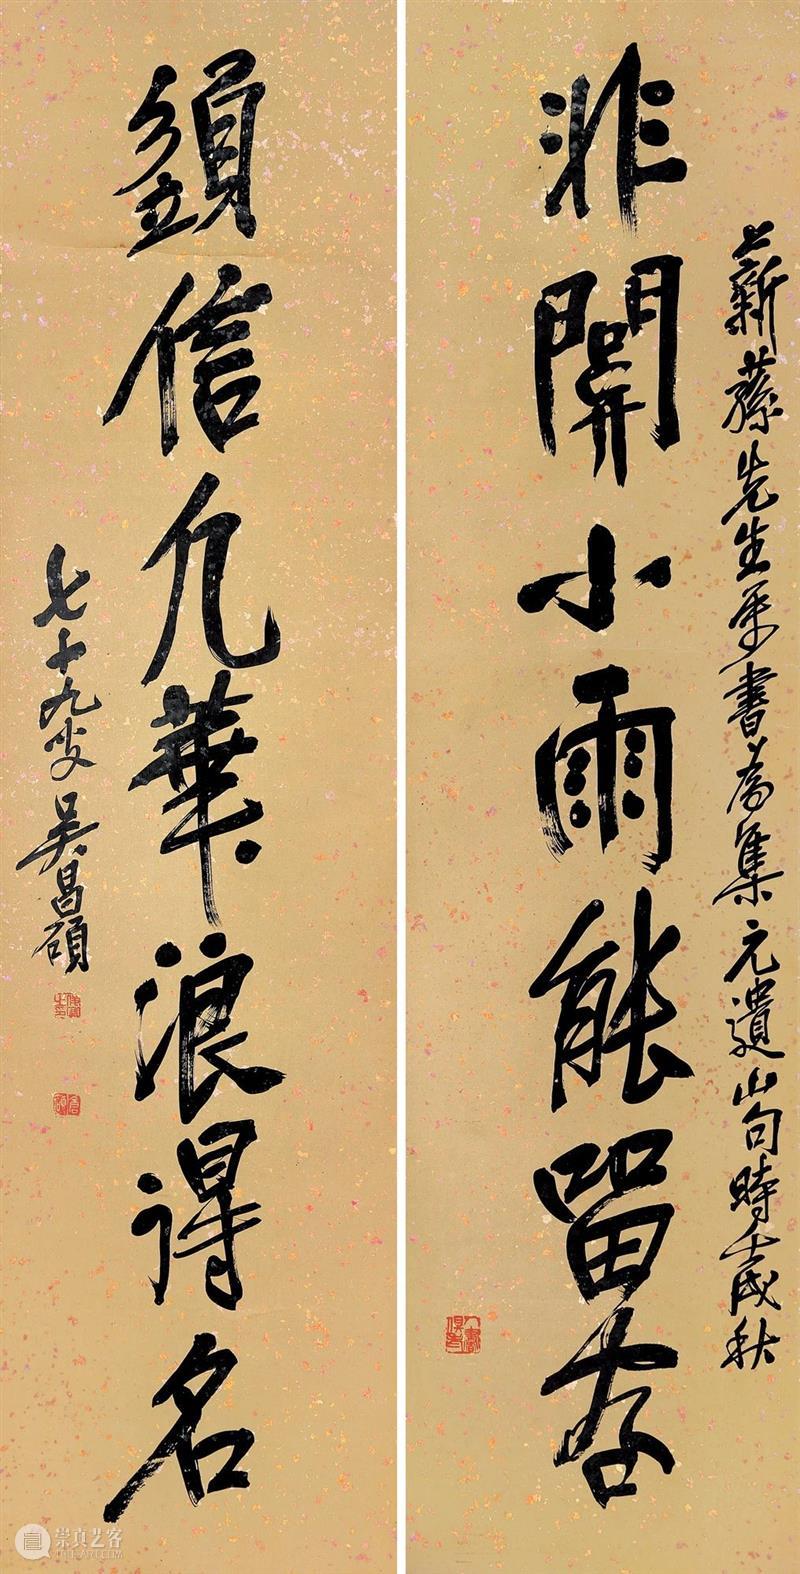 薪蓀先生屬書為集元遺山句時壬戌秋
非關小雨能留客
須信九華浪得名
七十九叟吳昌碩
崇真艺客